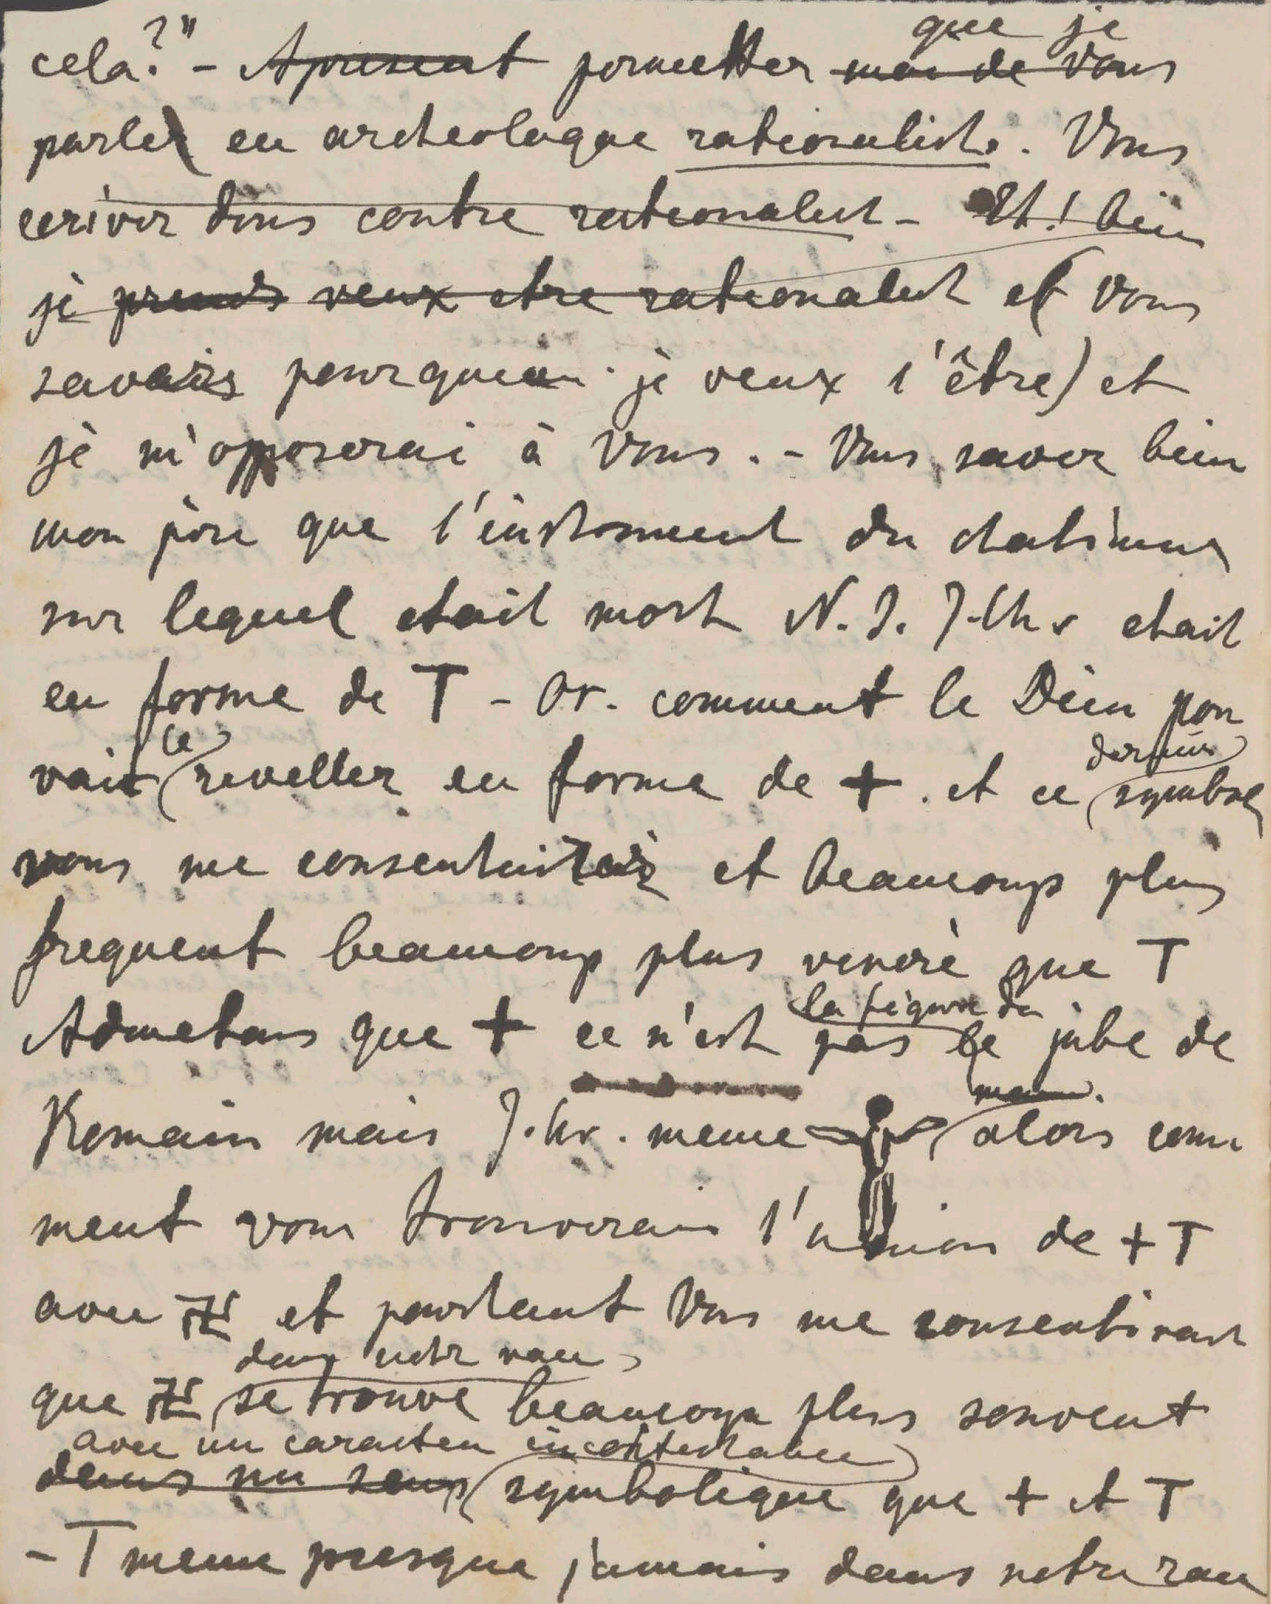 cela?" – Apresent permetter moi de vous
que je
parler en archeologue rationaliste. Vous
ecriver dons contre rationalist – Et! bien
je prends veux etre rationalist et (vous
savais pourquoi je veux l'être) et
je m'opposerai à vous. – Vous saver bien
mon père que l'instrument du chatiment
sur lequel etait mort N. J. J. Chr etait
en forme de T – Or. comment le Dieu pou
vait reveller en forme de + . et ce symbole
ce
dernier
vous me et beaucoup plus
frequent beaucoup plus veneré que T
Admetans que + ce n'est pas le jube de
la figure du
Romain mais J. Chr. meme alors com
ment vous trouverais l'union de + T
avec 卍 et pourtant vous me consentirait
que 卍 se trouve beaucoup plus souvent
dans notre race
dans un sens symbolique que + et T
avec un caractere incontestable
– T meme presque jamais dans notre race